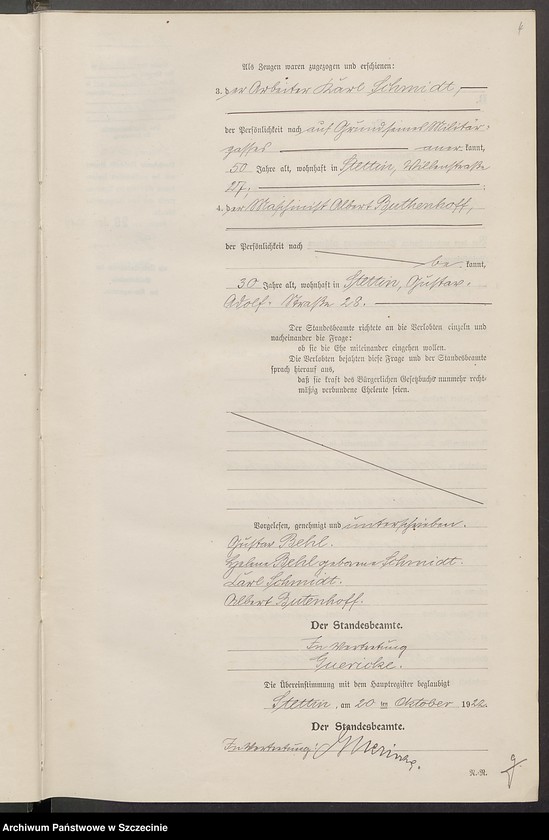 Als Zeugen waren zugezogen und erschienen:
3. der Arbeiter Karl Schmidt,
der Persönlichkeit nach auf Grund seines Militär-
passes anerkannt,
50 Jahre alt, wohnhaft in Stettin, Straße
27,
4. der Maschinist Albert Buthenhoff,
der Persönlichkeit nach
bekannt,
30 Jahre alt, wohnhaft in Stettin, Gustav-
Adolf-Straße 28.
Der Standesbeamte richtete an die Verlobten einzeln und
nacheinander die Frage:
ob sie die Ehe miteinander eingehen wollen.
Die Verlobten bejahten diese Frage und der Standesbeamte
sprach hierauf aus,
daß sie kraft des Bürgerlichen Gesetzbuchs nunmehr recht-
mäßig verbundene Eheleute seien.
Vorgelesen, genehmigt und unterschrieben.
Gustav Behl.
Behl geborene Schmidt.
Karl Schmidt.
Albert Butenhoff.
Der Standesbeamte.
In Vertretung
Guericke.
Die Übereinstimmung mit dem Hauptregister beglaubigt
Stettin, am 20 ten Oktober 1922.
Der Standesbeamte.
In Vertretung:
N.-R.
Archiwum Państwowe w Szczecinie